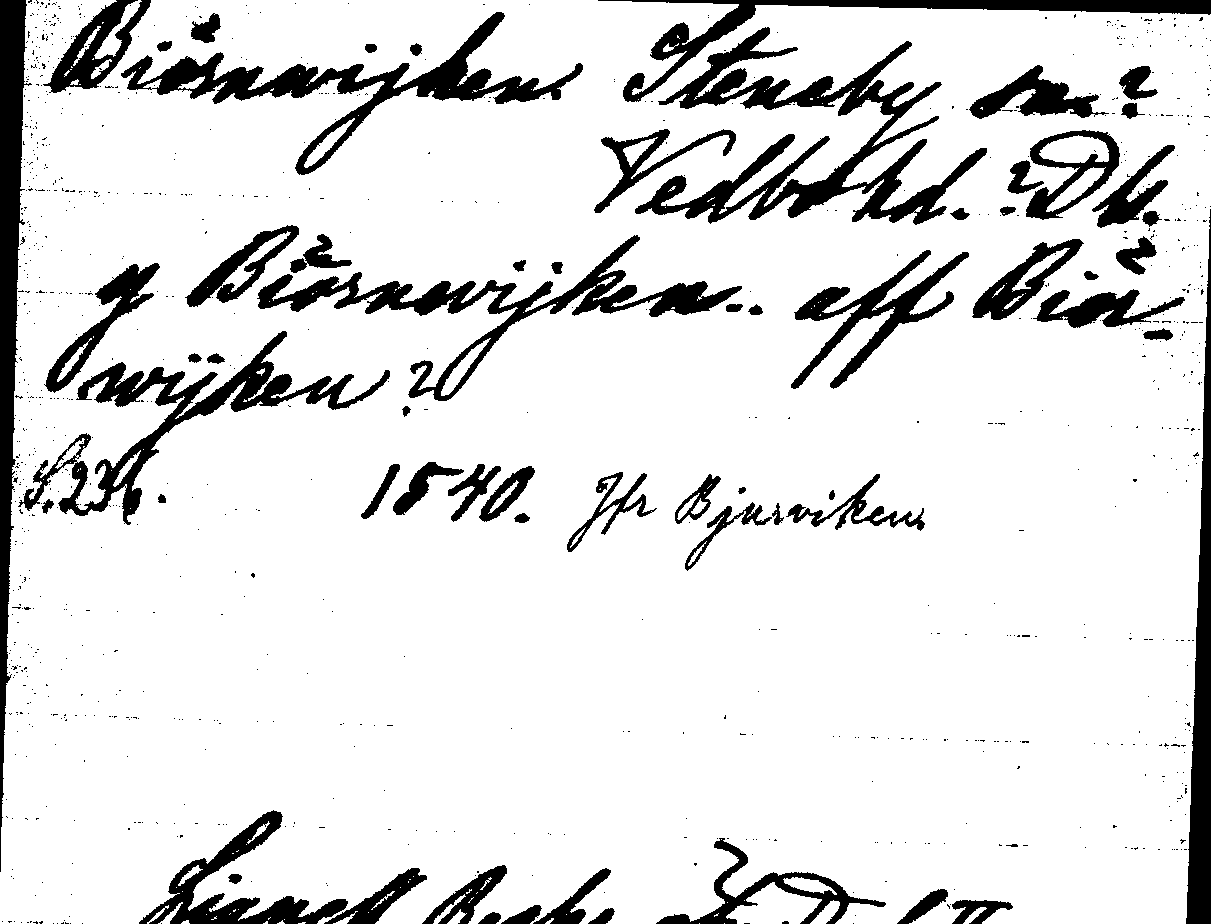 Biörnwijken. Steneby sn.?
Vedbo hd.? Dls.
y Biörnewijken.. aff Biör-
wijken?
S. 236. 1540. Jfr Bjurviken.